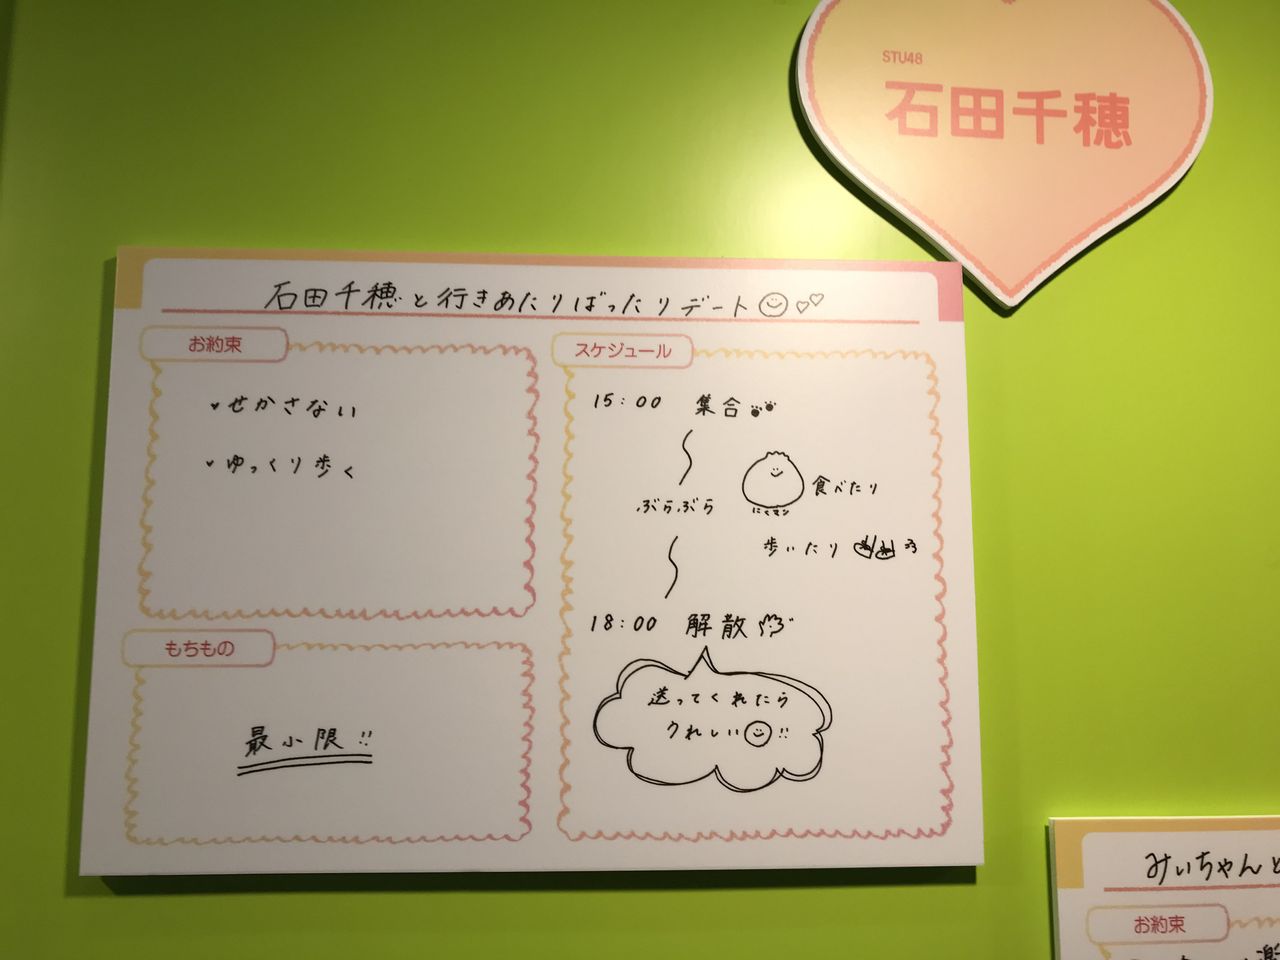 STU48
石田千穂
石田千穂と行きあたりばったりデート
お約束
せかさない
ゆっくり歩く
もちもの
最小限!!
スケジュール
15:00 集合
ぶらぶら
にくマン
食べたり
歩いたり
18:00 解散
送ってくれたら
うれしい!!
みぃちゃんと
お約束